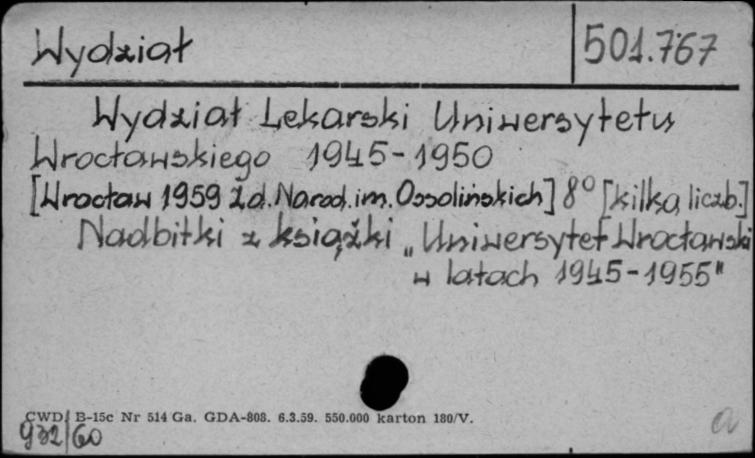 Wydział 501.767
Wydział Lekarski Uniwersytetu
Wrocławskiego 1945-1950
[Wrocław 1959 Zd. Narod. im. Ossolińskich] 8° [kilka liczb.]
Nadbitki z książki „Uniwersytet Wrocławski
w latach 1945-1955"
CWD/ B-15c Nr 514 Ga. GDA-808. 6.3.59. 550.000 karton 180/V.
932/60
a